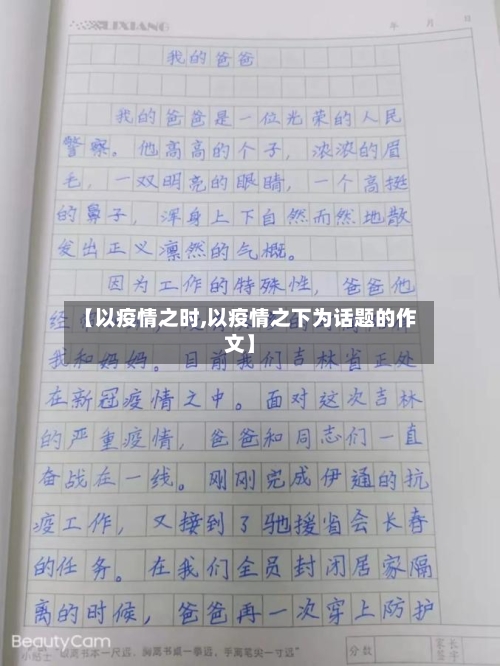 LIXIANG
年 月 日
我的爸爸
我的爸爸是一位光荣的人民
警察。他高高的个子，浓浓的眉
毛，一双明亮的眼睛，一个高挺
的鼻子，浑身上下自然而然地散
发出正义凛然的气概。
因为工作的特殊性，爸爸他
【以疫情之时,以疫情之下为话题的作
文】
我和妈妈。目前我们吉林省正处
在新冠疫情之中。面对这次吉林
的严重疫情，爸爸和同志们一直
奋战在一线。刚刚完成伊通的抗
疫工作，又接到了驰援省会长春
的任务。在我们全员封闭居家隔
离的时候，爸爸再一次穿上防护
小贴士 眼离书本一尺远，胸离书桌一拳远，手离笔尖一寸远
分数
家长
签字
BeautyCam